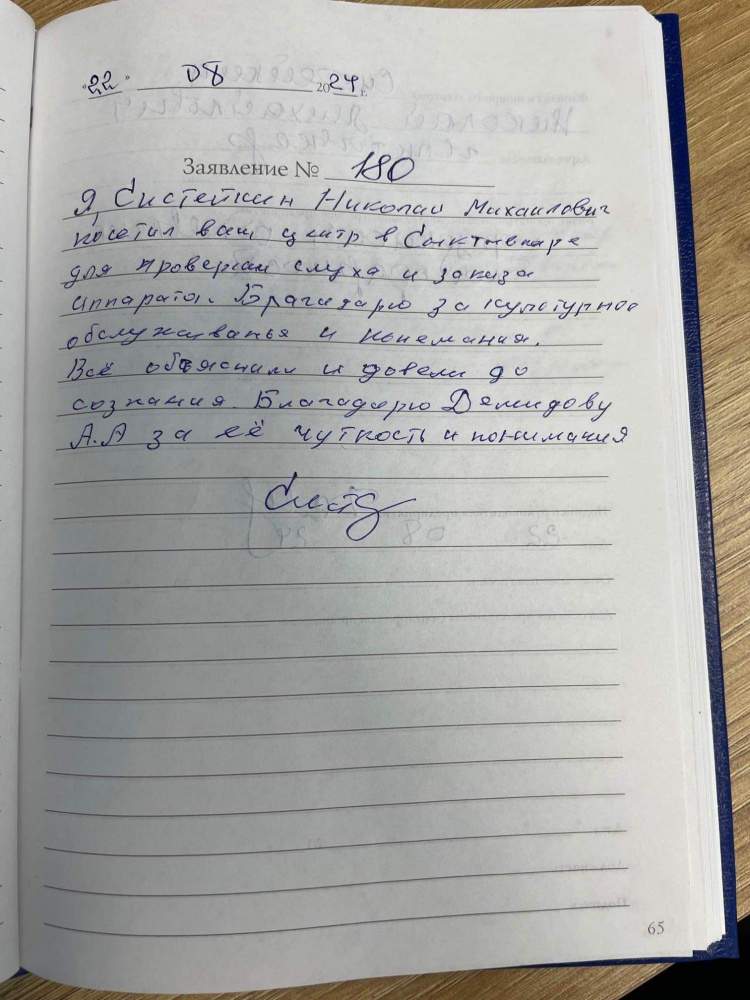 "22" 08 2024 г.
Заявление № 180
Я, Систейкин Николай Михаилович
посетил ваш центр в Сыктывкаре
для проверки слуха и заказа
аппарата. Благадарю за культурное
обслуживанья и понемания.
Всё объяснили и довели до
сознания. Благадарю Демидову
А.А за её чуткость и понимания
65